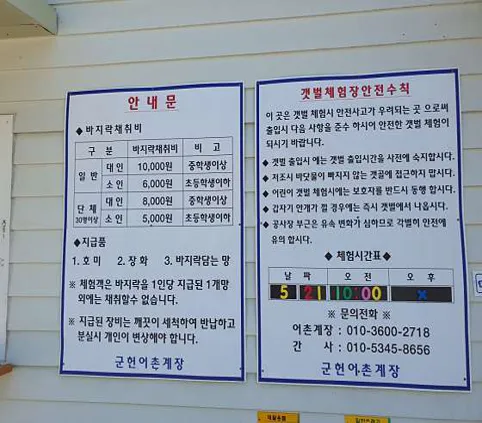 안 내 문
◆ 바지락채취비
구 분 바지락채취비 비 고
일 반 대 인 10,000원 중학생이상
소 인 6,000원 초등학생이하
단 체 30명이상 대 인 8,000원 중학생이상
소 인 5,000원 초등학생이하
◆지급품
1. 호 미 2. 장 화 3. 바지락담는 망
※ 체험객은 바지락을 1인당 지급된 1개망
외에는 채취할수 없습니다.
※ 지급된 장비는 깨끗이 세척하여 반납하고
분실시 개인이 변상해야 합니다.
군헌어촌계장
갯벌체험장안전수칙
이 곳은 갯벌 체험시 안전사고가 우려되는 곳 으로써
출입시 다음 사항을 준수 하시어 안전한 갯벌 체험이
되시기 바랍니다.
◆ 갯벌 출입시 에는 갯벌 출입시간을 사전에 숙지합시다.
◆ 저조시 바닷물이 빠지지 않는 갯골에 접근하지 맙시다.
◆ 어린이 갯벌 체험시에는 보호자를 반드시 동행 합시다.
◆ 갑자기 안개가 낄 경우에는 즉시 갯벌에서 나옵시다.
◆ 공사장 부근은 유속 변화가 심하므로 각별히 안전에
유의 합시다.
◆ 체험시간표◆
날 짜 오 전 오 후
5 21 10:00 ×
※ 문의전화 ※
어촌계장 : 010-3600-2718
간 사 : 010-5345-8656
군헌어촌계장